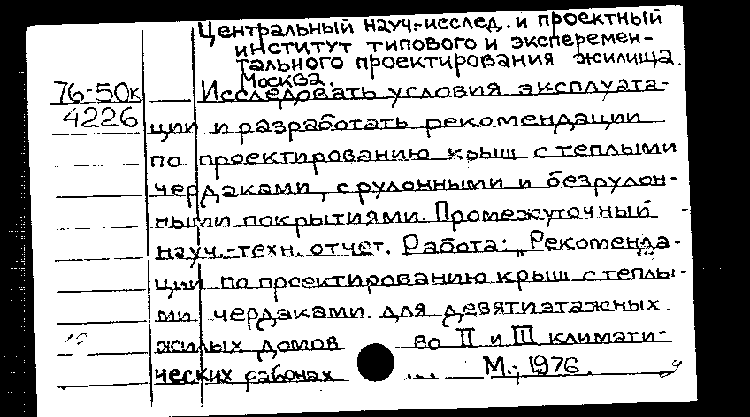 Центральный науч.-исслед. и проектный
институт типового и эксперемен-
тального проектирования жилища.
Москва.
76-50к Исследовать условия эксплуата-
4226 ции и разработать рекомендации
по проектированию крыш с теплыми
чердаками, с рулонными и безрулон-
ными покрытиями. Промежуточный
науч.-техн. отчет. Работа: „Рекоменда-
ции по проектированию крыш с теплы-
ми чердаками для девятиэтажных
жилых домов во II и III климати-
ческих районах ... М., 1976.